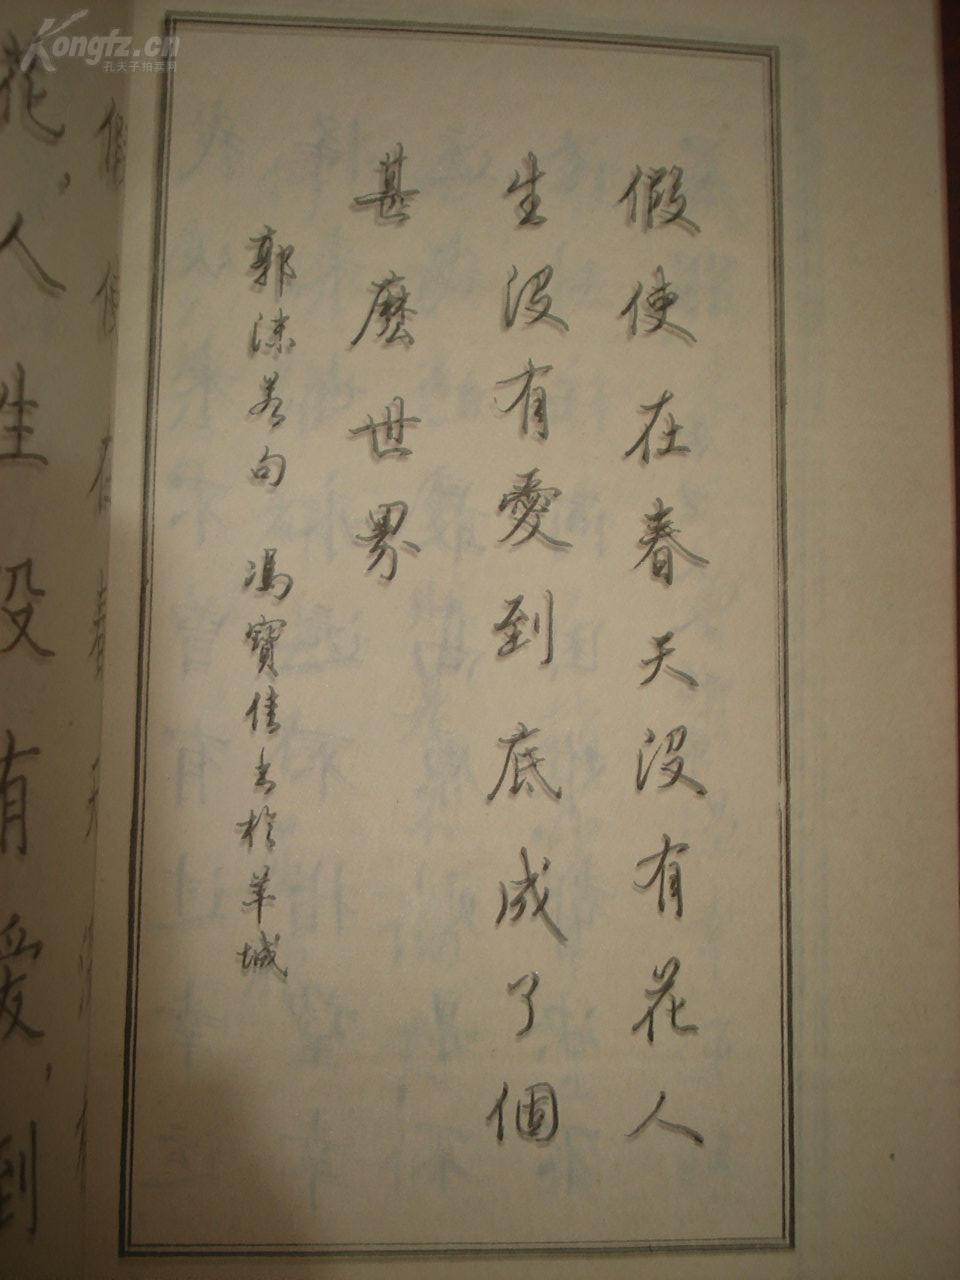 假使在春天没有花人
生没有愛到底成了個
甚麼世界
郭沫若句 馮寶佳書於羊城
花，人生没有愛，到
Kongfz.cn
孔夫子拍卖网